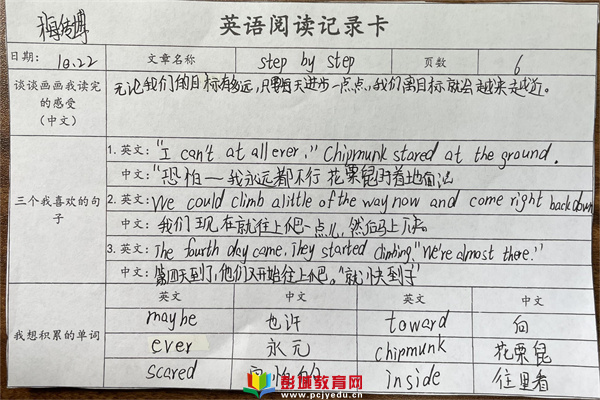 英语阅读记录卡
日期: 10.22 文章名称 step by step 页数 6
谈谈画画我读完的感受(中文) 无论我们的目标有多远,只要每天进步一点点,我们离目标就会越来越近。
三个我喜欢的句子
1. 英文: "I can't at all ever," Chipmunk stared at the ground.
中文: "恐怕一我永远都不行 花栗鼠盯着地面说
2. 英文: We could climb a little of the way now and come right back down
中文: 我们现在就往上爬一点儿,然后马上下来。
3. 英文: The fourth day came, They started climbing. "We're almost there."
中文: 第四天到了,他们又开始往上爬。"就快到了"
我想积累的单词
英文 中文 英文 中文
maybe 也许 toward 向
ever 永元 chipmunk 花栗鼠
scared inside 往里看
彭城教育网
www.pcjyedu.cn